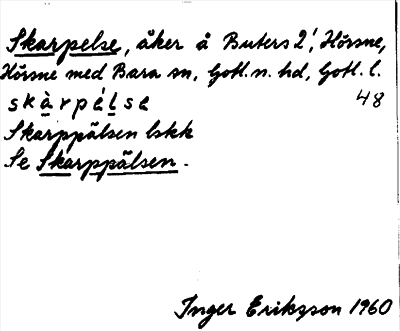 Skarpelse, åker å Buters 2!, Hörsne,
Hörsne med Bara sn, Gotl. n. hd, Gotl. l.
skàrpélse 48
Skarppälsen lskk
Se Skarppälsen.
Inger Erikzson 1960